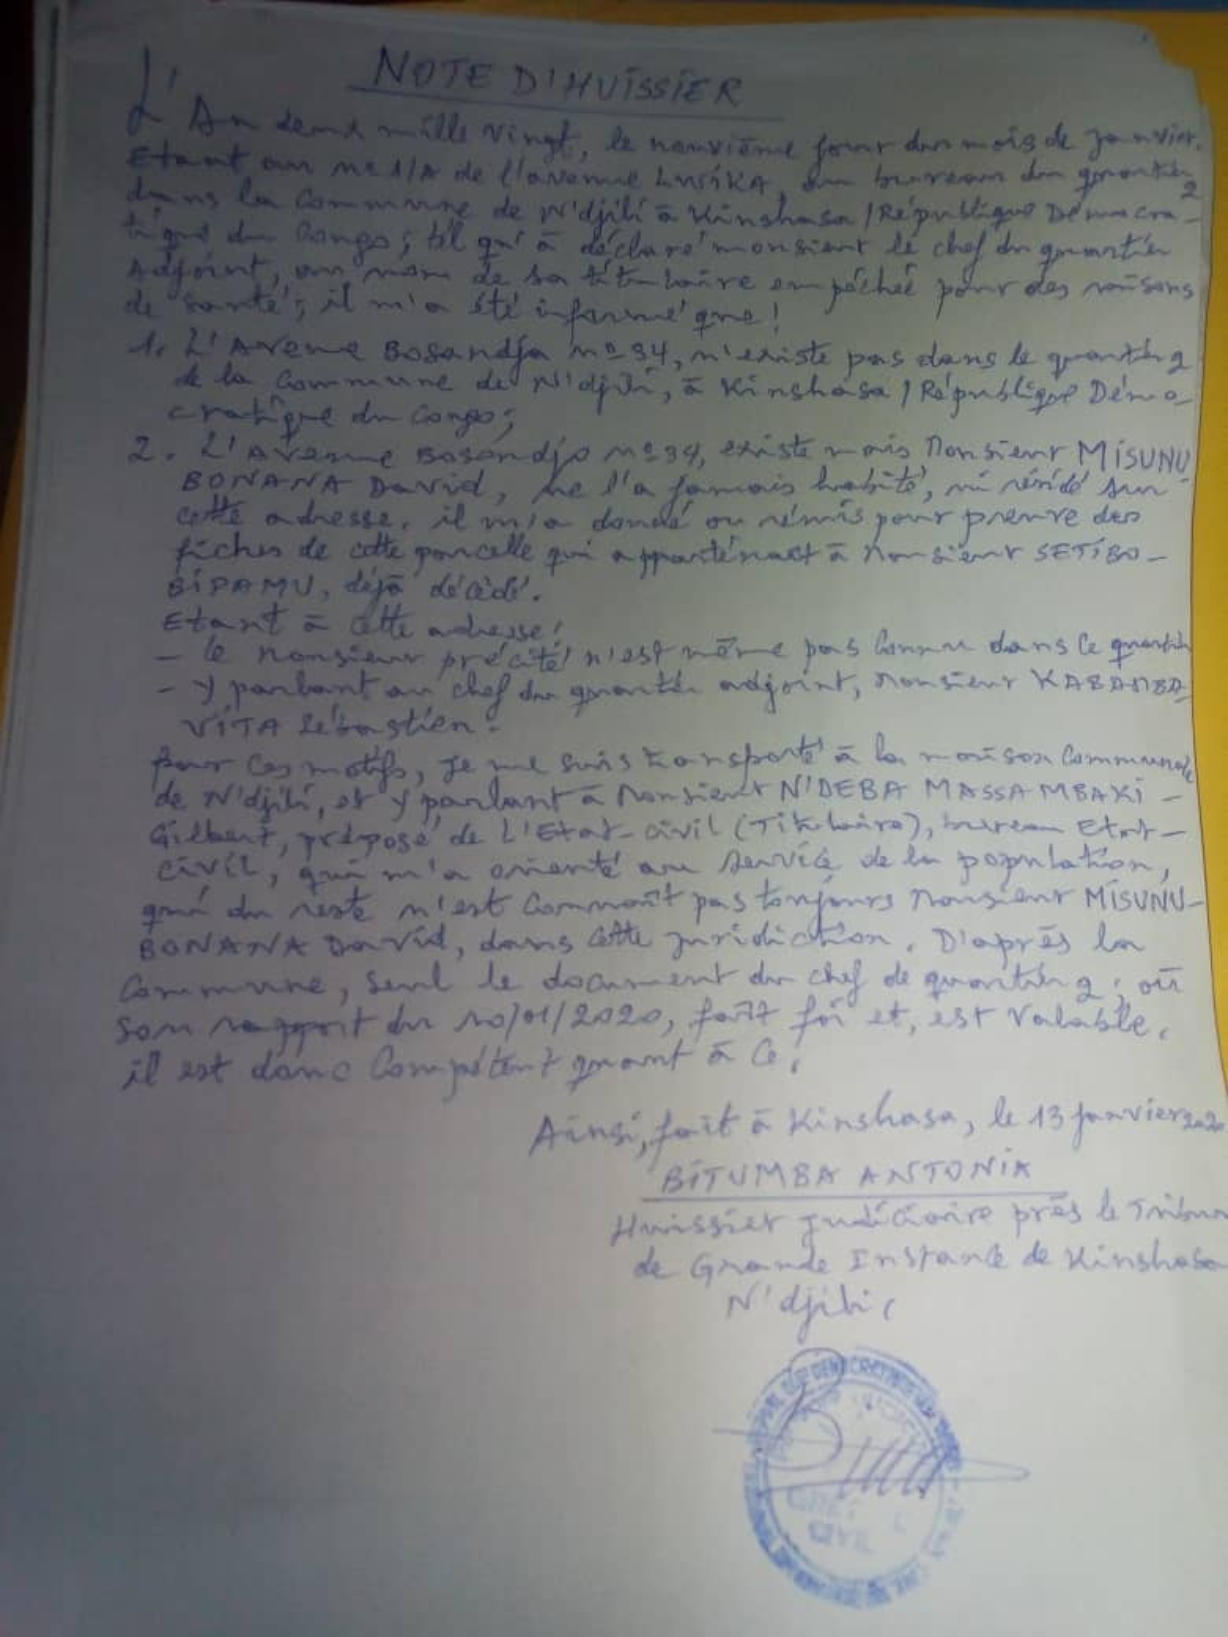 NOTE D'HUISSIER
L'An deux mille vingt, le neuvième jour du mois de Janvier.
Etant au n° 1/A de l'avenue LUSIKA, au bureau du quartier 2
dans la Commune de N'djili à Kinshasa / République Démocra-
tique du Congo; tel qu'à déclaré monsieur le chef du quartier
Adjoint, au nom de sa titulaire empêchée pour des raisons
de santé; il m'a été informé que!
1. L'Avenue Bosandja n° 94, n'existe pas dans le quartier 2
de la Commune de N'djili, à Kinshasa / République Démo-
cratique du Congo;
2. L'Avenue Bosandjo n° 94, existe mais Monsieur MISUNU
BONANA David, ne l'a jamais habité, ni résidé sur
cette adresse. il m'a donné ou rémis pour preuve des
fiches de cette parcelle qui appartenait à Monsieur SETIBO-
BIPAMU, déjà décédé.
Etant à cette adresse!
- le Monsieur précité n'est même pas connu dans ce quartier
- Y parlant au chef du quartier adjoint, Monsieur KABAMBA
VITA Sébastien.
Pour ces motifs, je me suis transporté à la maison Communale
de N'djili, et y parlant à Monsieur N'DEBA MASSAMBAKI-
Gilbert, préposé de L'Etat-civil (Titulaire), bureau Etat-
civil, qui m'a orienté au service de la population,
qui du reste n'est Connaît pas toujours Monsieur MISUNU-
BONANA David, dans cette juridiction. D'après la
Commune, seul le document du chef de quartier 2; où
son rapport du 10/01/2020, fait foi et, est Valable.
il est donc Compétent quant à Ce.
Ainsi, fait à Kinshasa, le 13 janvier 2020
BITUMBA ANTONIA
Huissier Judiciaire près le Tribun
de Grande Instance de Kinshasa
N'djili.
CIVIL